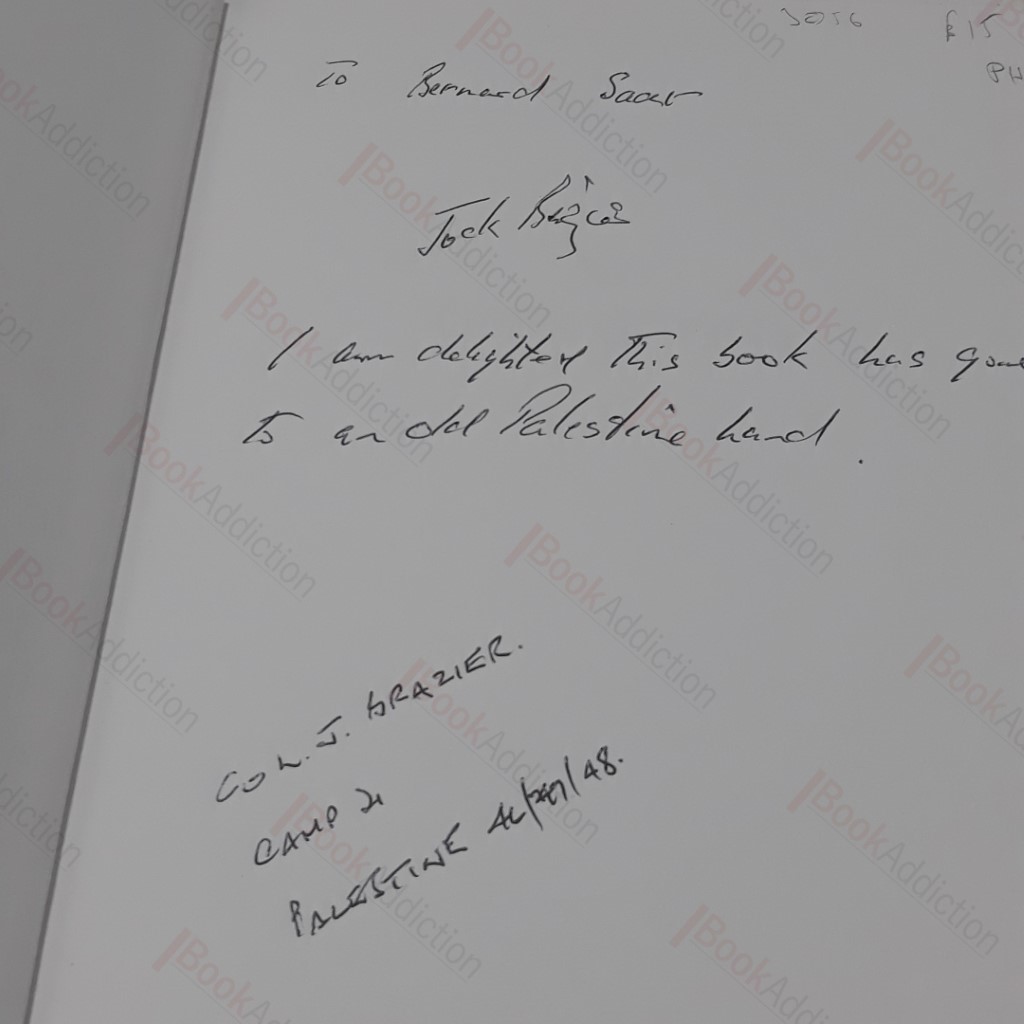 3056 £15
PH
To Bernard
Jock
I am delighted This book has gone
to an old Palestine hand.
COL. J. BRAZIER.
CAMP 21
PALESTINE 46/47/48.